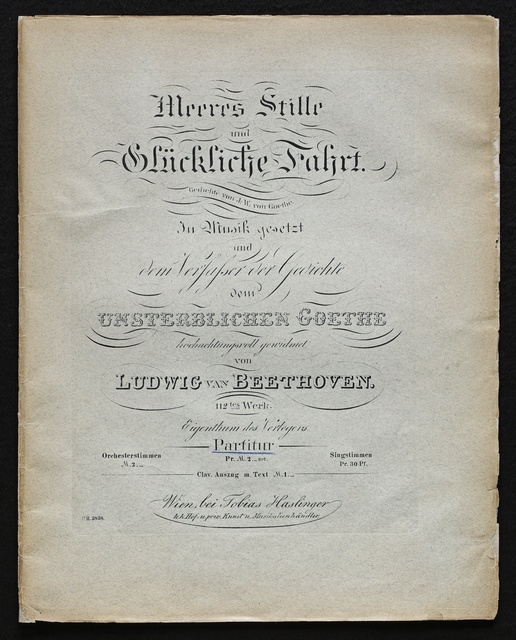 Meeres Stille
und
Glückliche Fahrt.
Gedichte von J. W. von Goethe.
In Musik gesetzt
und
dem Verfaſser der Gedichte
dem
UNSTERBLICHEN GOETHE
hochachtungsvoll gewidmet
von
LUDWIG VAN BEETHOVEN.
112tes Werk.
Eigenthum des Verlegers.
Partitur
Pr. M. 2._ net.
Orchesterstimmen
M. 2._
Singstimmen
Pr. 30 Pf.
Clav. Auszug m. Text M. 1._
Wien, bei Tobias Haslinger
k.k. Hof- u. priv. Kunst u. Musikalienhändler.